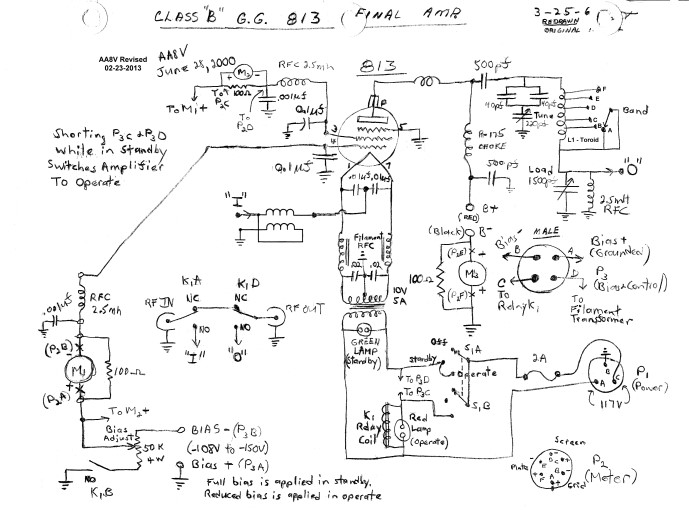 CLASS "B" G.G. 813 (FINAL AMR
3-25-6
REDRAWN
ORIGINAL
AA8V Revised
02-23-2013
AA8V
June 28, 2000
RFC 2.5mh
813
500pf
M2
100Ω
To M1+
To P2C
.001µf
To P2D
0.1µf
Shorting P3C & P3D
while in Standby
Switches Amplifier
To Operate
P
3
4
5
1
7
0.1µf
.01µf
.01µf
40pf
40pf
Tune
220pf
F
E
D
C
B
A
Band
L1-Toroid
R-175
CHOKE
500pf
Load
1500pf
"O"
2.5mH
RFC
"I"
B+
(RED)
Filament
RFC
.02
.02
(Black)
B-
(P2E)
M3
(P2F)
100Ω
MALE
Bias-
B
A
Bias+
(Grounded)
C
To
Relay K1
D
To
Filament
Transformer
P3
(Bias+Control)
RFC
2.5mh
.001µf
K1A
NC
K1D
NC
RF IN
RF OUT
NO
NO
"I"
"O"
10V
5A
GREEN
LAMP
(Standby)
(P2B)
M1
(P2A)
100Ω
To M2+
Off
S1A
Standby
Operate
S1B
To P3D
To P3C
2A
P1
(Power)
A
B
C
117V
K1
Relay
Coil
Red
Lamp
(Operate)
Bias
Adjust
50K
4W
BIAS-(P3B)
(-108V to -150V)
Bias+(P3A)
NO
K1B
Full bias is applied in standby.
Reduced bias is applied in operate
Screen
Plate
Grid
P2
(Meter)